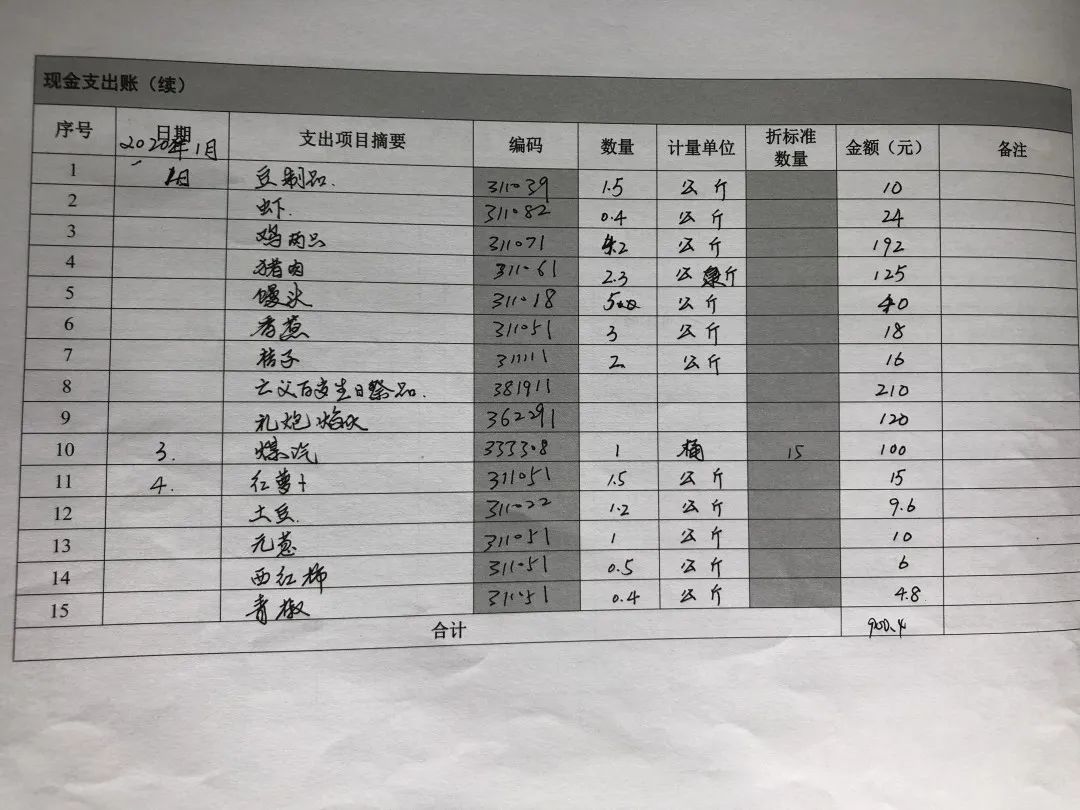 现金支出账（续）
序号 日期 支出项目摘要 编码 数量 计量单位 折标准数量 金额（元） 备注
2020年1月
1 1日 豆制品. 311039 1.5 公斤 10
2 虾. 311082 0.4 公斤 24
3 鸡两只 311071 4.2 公斤 192
4 猪肉 311061 2.3 公斤 125
5 馒头 311018 公斤 40
6 香葱 311051 3 公斤 18
7 桔子 311111 2 公斤 16
8 亡父百岁生日祭品. 381911 210
9 礼炮焰火 362291 120
10 3. 煤汽 333308 1 桶 15 100
11 4. 红萝卜 311051 1.5 公斤 15
12 土豆. 311022 1.2 公斤 9.6
13 元葱 311051 1 公斤 10
14 西红柿 311051 0.5 公斤 6
15 青椒 311051 0.4 公斤 4.8
合计 900.4